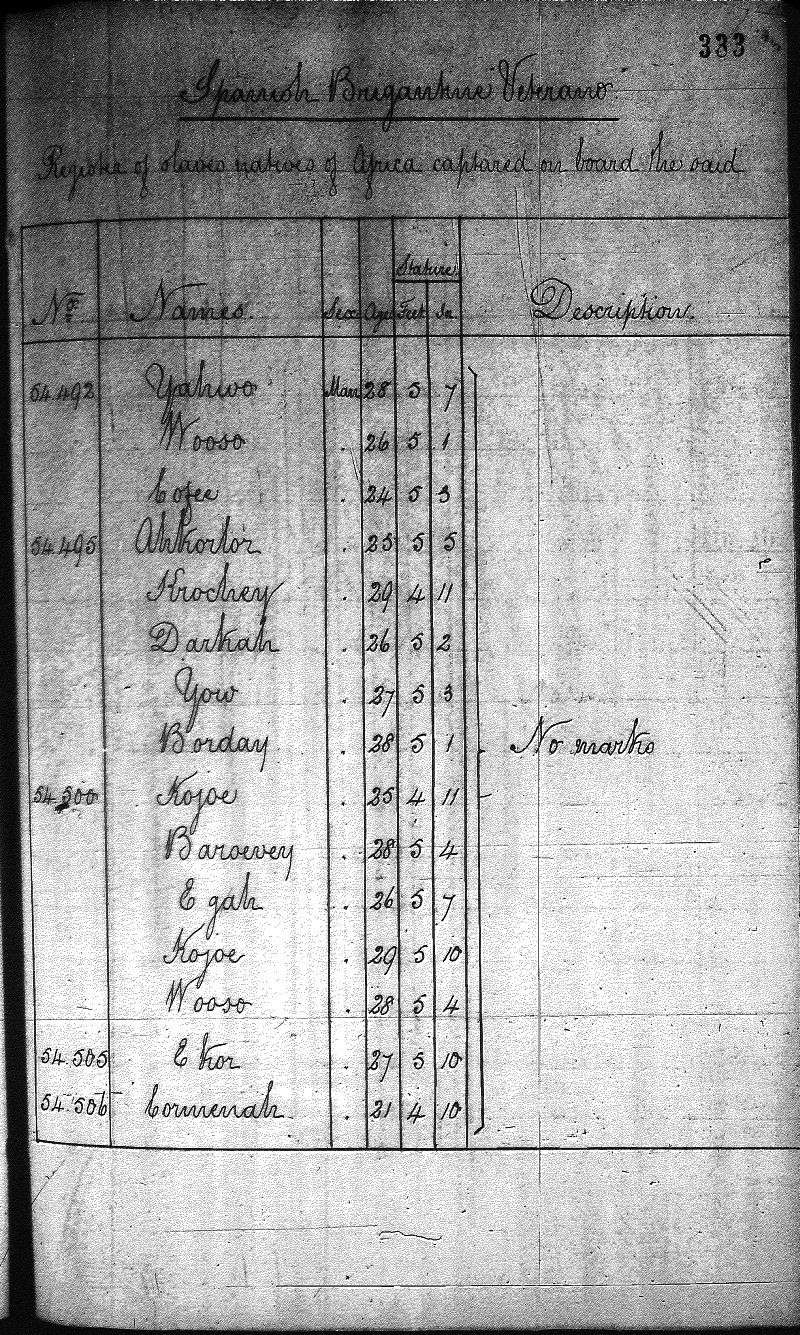 333
Spanish Brigantine Veterano
Register of slaves natives of Africa captured on board the said
Stature
No. Names. Sex Age Feet In. Description.
54.492 Yahwo Man 28 5 7
Wooso . 26 5 1
Cofee . 24 5 3
54.495 Ahkortor . 25 5 5
Krochey . 29 4 11
Darkah . 26 5 2
Yow . 27 5 3
Borday . 28 5 1 No marks
54.500 Kojoe . 25 4 11
Baroevey . 28 5 4
Egah . 26 5 7
Kojoe . 29 5 10
Wooso . 28 5 4
54.505 Ekor . 27 5 10
54.506 Cormenah . 21 4 10